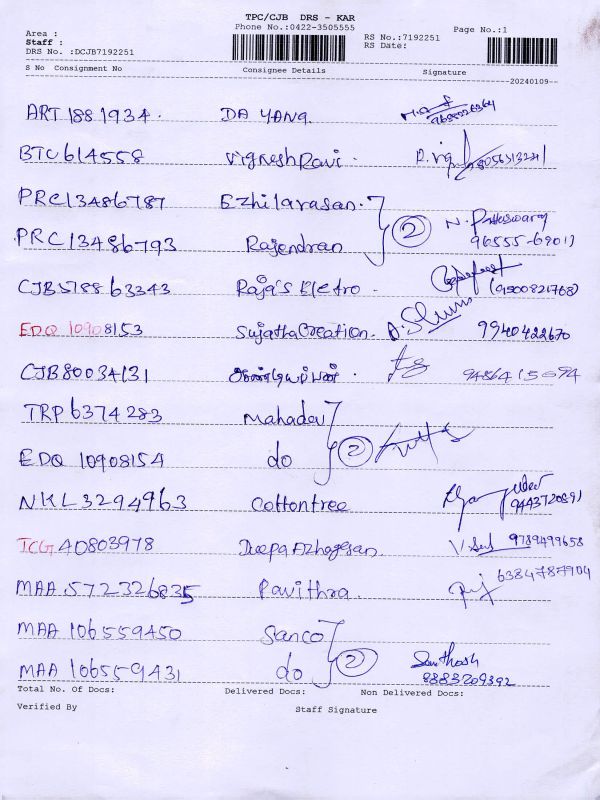 TPC/CJB DRS - KAR
Phone No.:0422-3505555
Area :
Staff :
DRS No. :DCJB7192251
RS No.:7192251
RS Date:
Page No.:1
S No Consignment No Consignee Details Signature
20240109
ART 188 1934. DA YANG.
BTC 614558 Vignesh Ravi.
PRC 13486787 Ezhilarasan.
PRC 13486793 Rajendran 2 96555-69011
CJB 578863343 Raja's Eletro. (9500821768)
EDQ 10908153 Sujatha Creation. 9940422670
CJB 80034131
TRP 6374283 Mahadev
EDQ 10908154 do 2
NKL 3294963 Cottontree 9443720891
TCG 40803978 Deepa Azhagesan. 9789499658
MAA 572326835 Pavithra. 6384787904
MAA 106559450 Sanco
MAA 106559431 do 2 Santhosh
8883209392
Total No. Of Docs: Delivered Docs: Non Delivered Docs:
Verified By Staff Signature